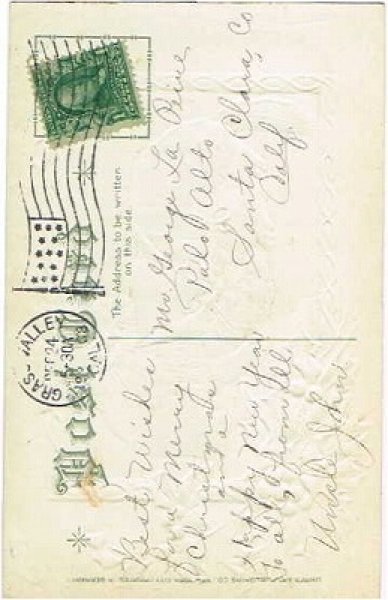 POST CARD
GRASS VALLEY
DEC 24
4 30 P
CAL.
The Address to be written
on this side
Best Wishes
for a Merry
Christmas
and a
Happy New Year
to all, from all
Uncle John
Mr George La Prine
Palo Alto
Santa Clara Co
Calif